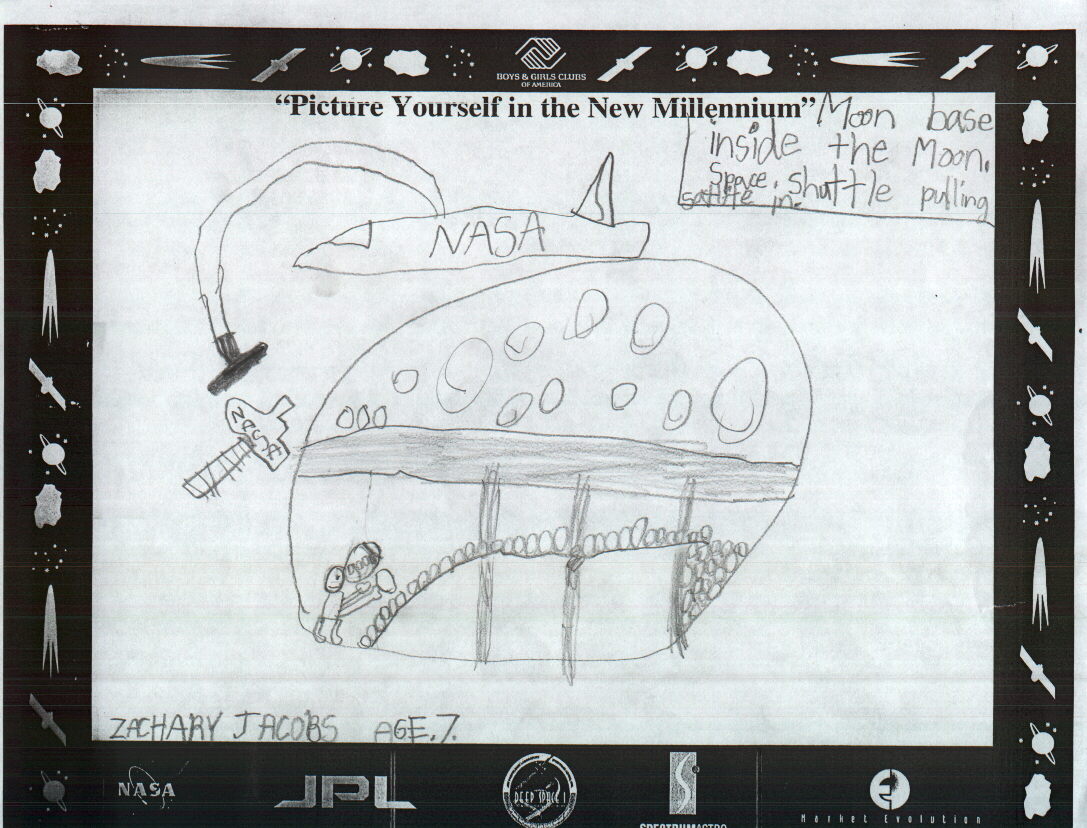 BOYS & GIRLS CLUBS
OF AMERICA
“Picture Yourself in the New Millennium”
Moon base
inside the Moon.
Space. shuttle pulling
satitte in.
NASA
NASA
ZACHARY JACOBS AGE.7.
NASA
JPL
DEEP SPACE 1
SPECTRUMASTRO
Market Evolution